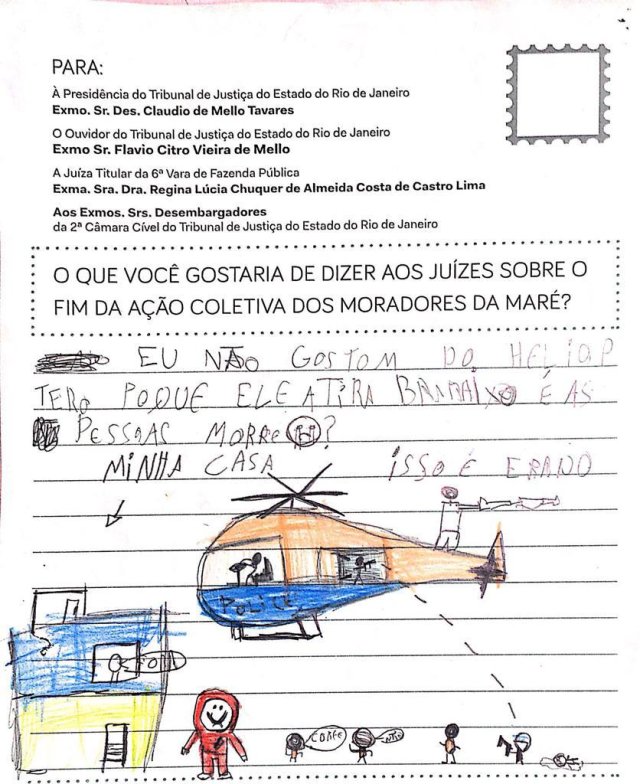 PARA:
À Presidência do Tribunal de Justiça do Estado do Rio de Janeiro
Exmo. Sr. Des. Claudio de Mello Tavares
O Ouvidor do Tribunal de Justiça do Estado do Rio de Janeiro
Exmo Sr. Flavio Citro Vieira de Mello
A Juíza Titular da 6ª Vara de Fazenda Pública
Exma. Sra. Dra. Regina Lúcia Chuquer de Almeida Costa de Castro Lima
Aos Exmos. Srs. Desembargadores
da 2ª Câmara Cível do Tribunal de Justiça do Estado do Rio de Janeiro
O QUE VOCÊ GOSTARIA DE DIZER AOS JUÍZES SOBRE O
FIM DA AÇÃO COLETIVA DOS MORADORES DA MARÉ?
EU NÃO GOSTOM DO HELIOP
TERO POQUE ELE ATIRA BARAIXO É AS
PESSOAS MORRE?
MINHA CASA ISSO É ERADO
POLICE
CORRE
NÃO